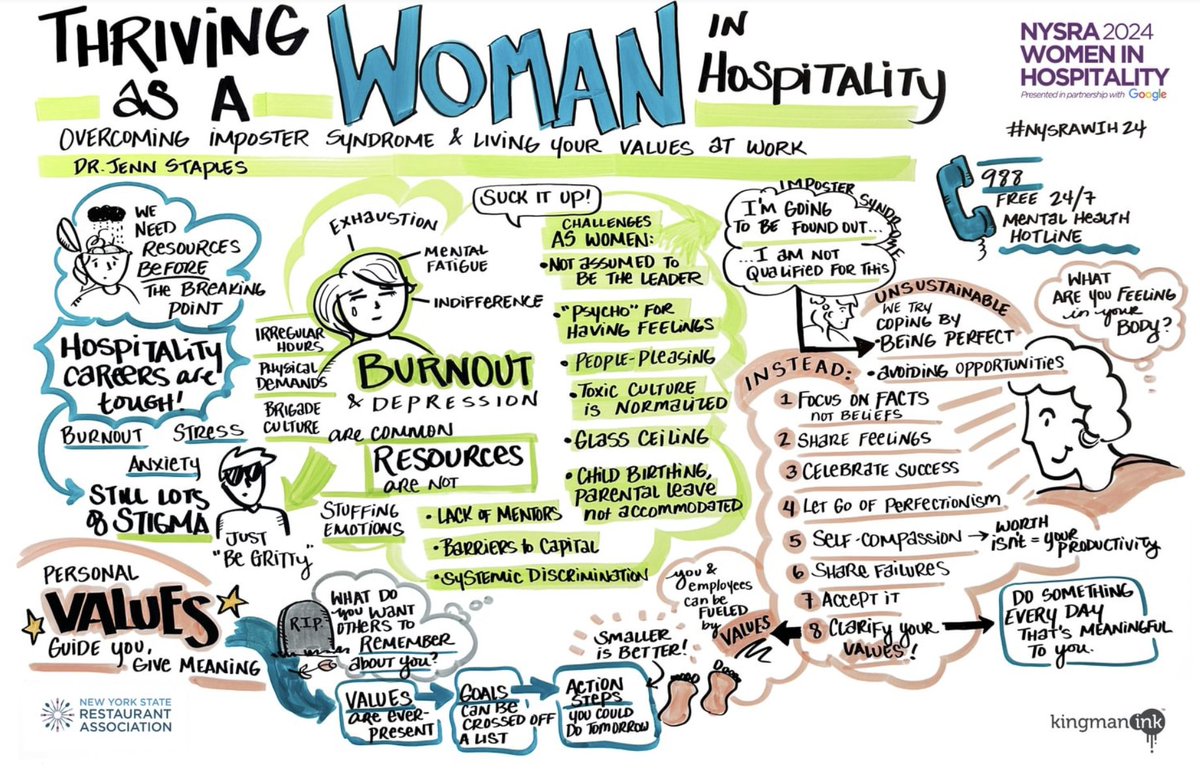 THRIVING
AS A
WOMAN
IN
HOSPITALITY
OVERCOMING IMPOSTER SYNDROME & LIVING YOUR VALUES AT WORK
DR. JENN STAPLES
NYSRA 2024
WOMEN IN
HOSPITALITY
Presented in partnership with Google
#NYSRAWIH24
988
FREE 24/7
MENTAL HEALTH
HOTLINE
WE
NEED
RESOURCES
BEFORE
THE BREAKING
POINT
HOSPITALITY
CAREERS ARE
TOUGH!
BURNOUT
STRESS
ANXIETY
STILL LOTS
OF STIGMA
JUST
"BE GRITTY"
EXHAUSTION
MENTAL
FATIGUE
INDIFFERENCE
IRREGULAR
HOURS
PHYSICAL
DEMANDS
BRIGADE
CULTURE
BURNOUT
& DEPRESSION
ARE COMMON
RESOURCES
ARE NOT
STUFFING
EMOTIONS
• LACK OF MENTORS
• BARRIERS TO CAPITAL
• SYSTEMIC DISCRIMINATION
SUCK IT UP!
CHALLENGES
AS WOMEN:
• NOT ASSUMED TO
BE THE LEADER
• "PSYCHO" FOR
HAVING FEELINGS
• PEOPLE-PLEASING
• TOXIC CULTURE
IS NORMALIZED
• GLASS CEILING
• CHILD BIRTHING,
PARENTAL LEAVE
NOT ACCOMMODATED
IMPOSTER SYNDROME
I'M GOING
TO BE FOUND OUT...
...I AM NOT
QUALIFIED FOR THIS
UNSUSTAINABLE
WE TRY
COPING BY
• BEING PERFECT
• AVOIDING OPPORTUNITIES
WHAT
ARE YOU FEELING
IN YOUR
BODY?
INSTEAD:
1 FOCUS ON FACTS
NOT BELIEFS
2 SHARE FEELINGS
3 CELEBRATE SUCCESS
4 LET GO OF PERFECTIONISM
5 SELF-COMPASSION → WORTH
ISN'T = YOUR
PRODUCTIVITY
6 SHARE FAILURES
7 ACCEPT IT
8 CLARIFY YOUR
VALUES!
DO SOMETHING
EVERY DAY
THAT'S MEANINGFUL
TO YOU.
YOU &
EMPLOYEES
CAN BE
FUELED
BY
VALUES
PERSONAL
VALUES
GUIDE YOU,
GIVE MEANING
R.I.P.
WHAT DO
YOU WANT
OTHERS TO
REMEMBER
ABOUT YOU?
VALUES
ARE EVER-
PRESENT
GOALS
CAN BE
CROSSED OFF
A LIST
ACTION
STEPS
YOU COULD
DO TOMORROW
SMALLER
IS BETTER!
NEW YORK STATE
RESTAURANT
ASSOCIATION
kingman ink™